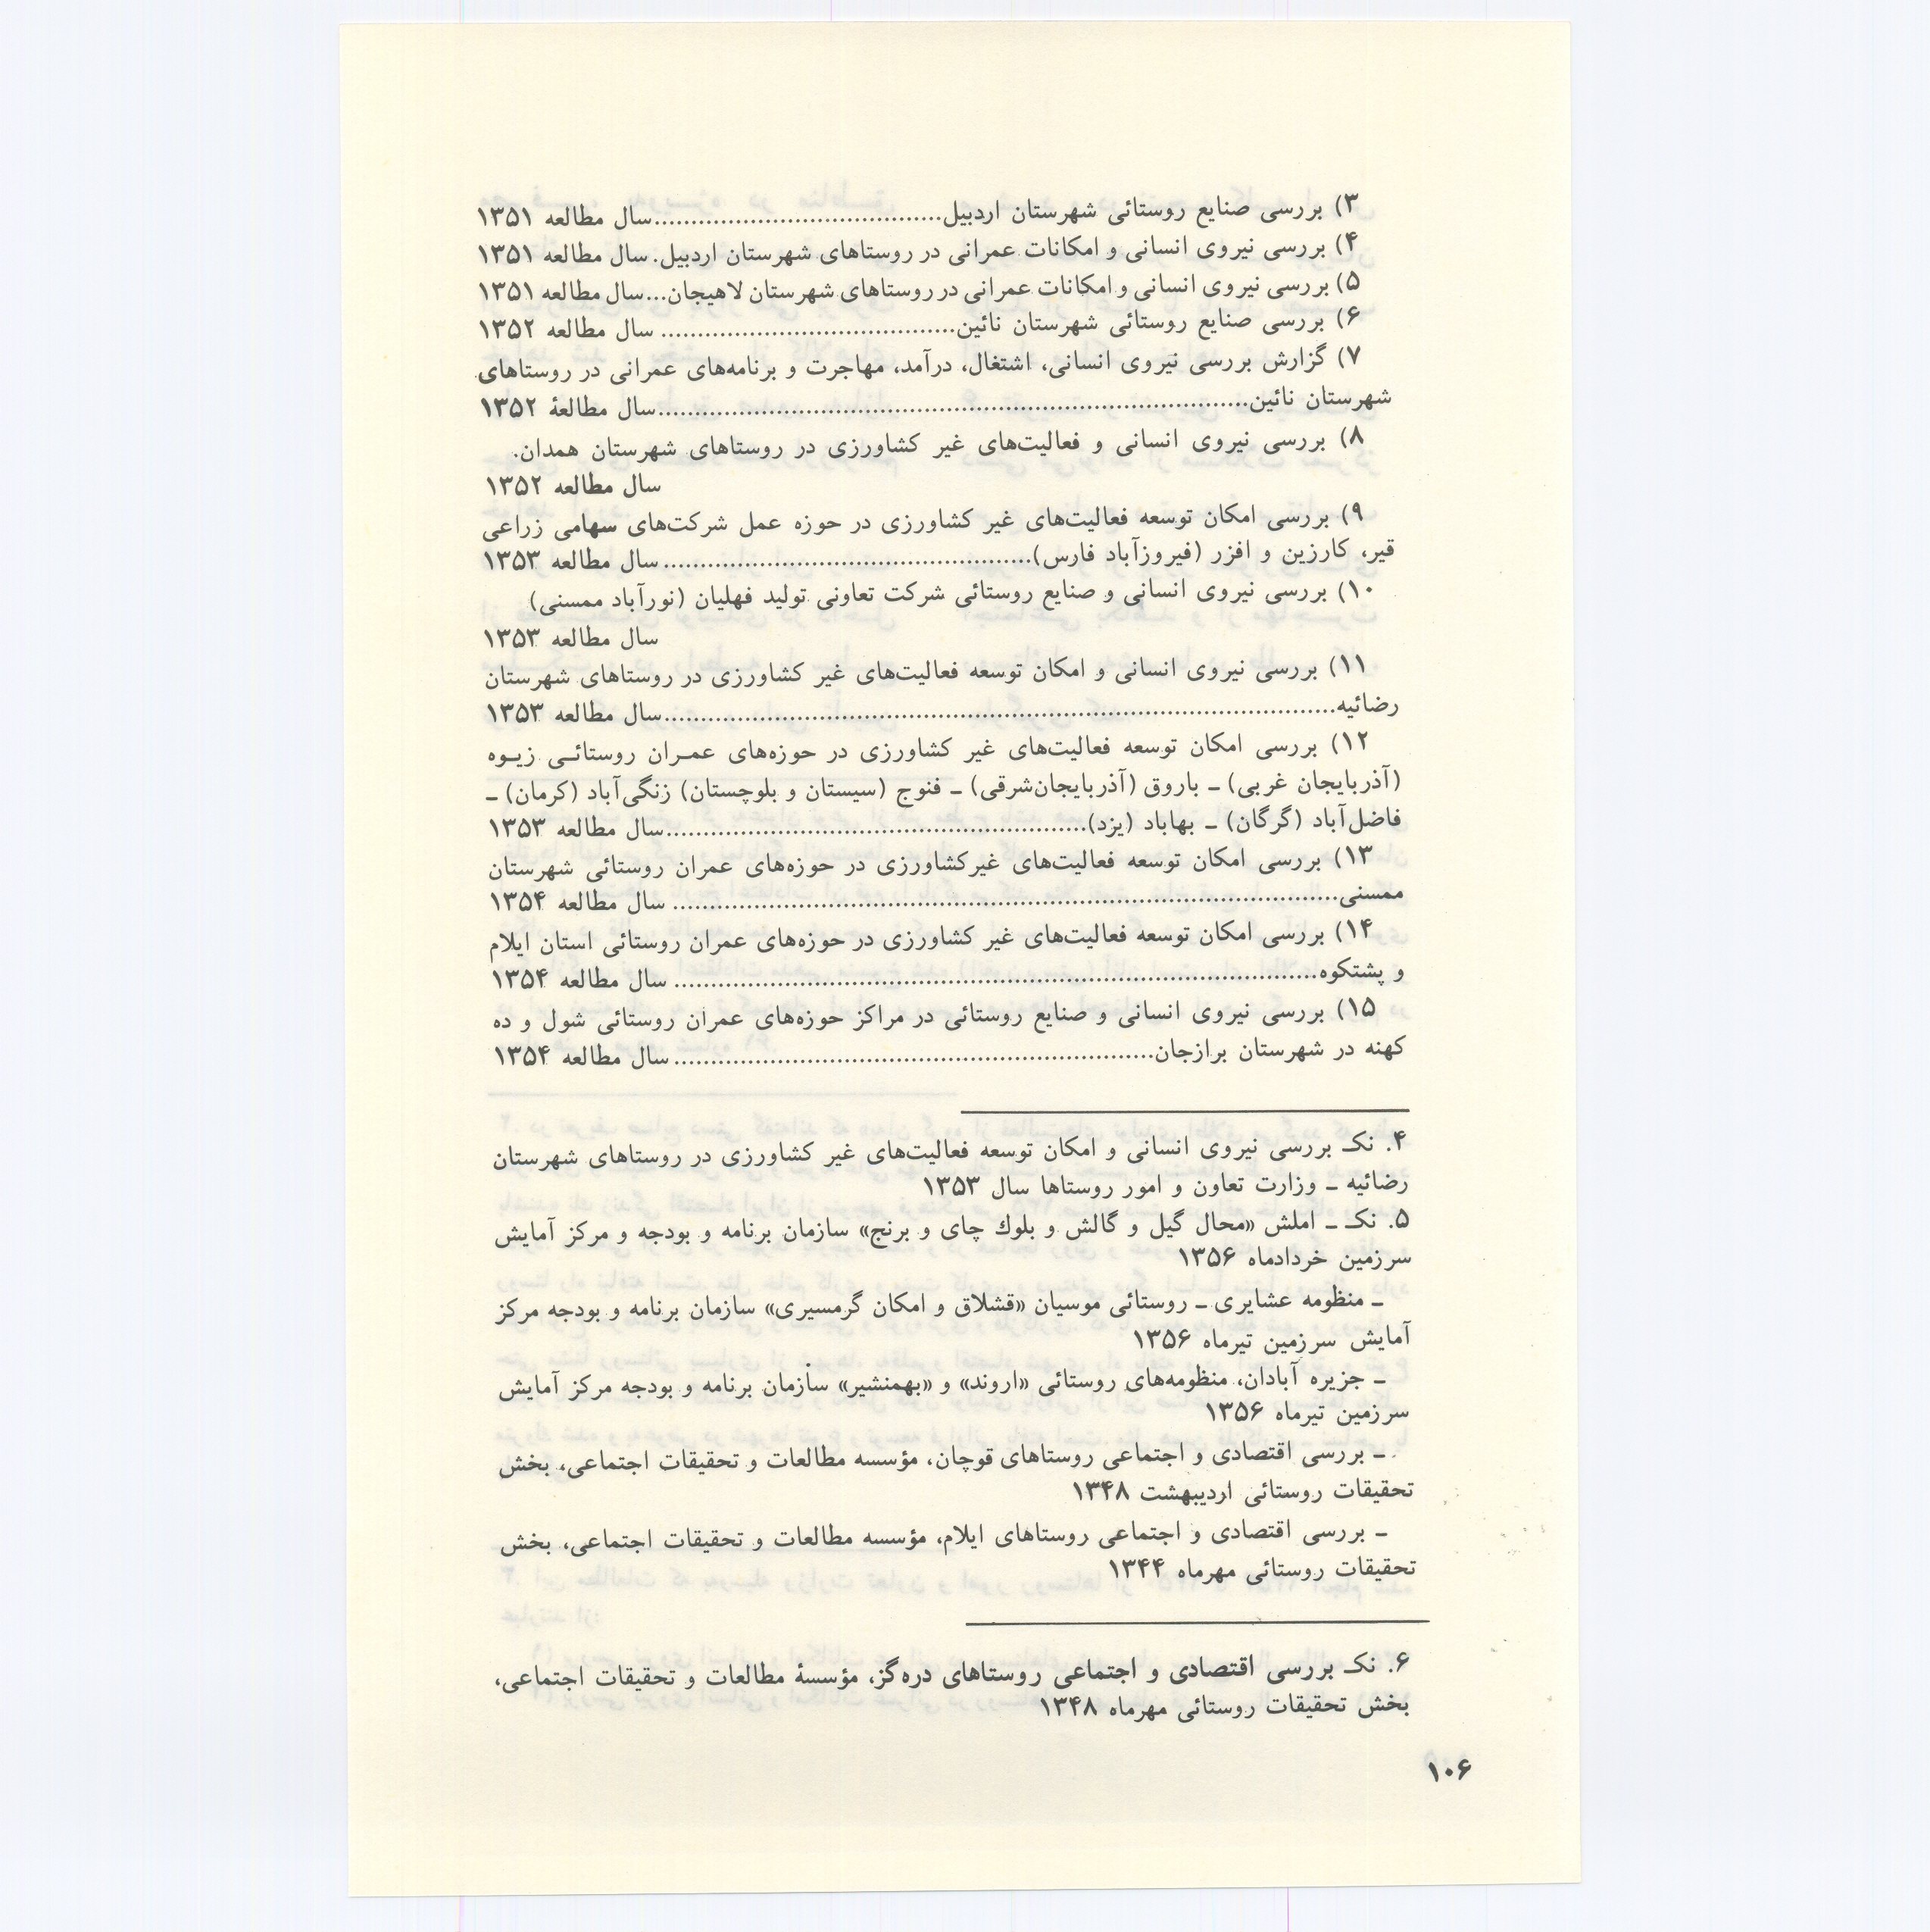 ۳) بررسی صنایع روستائی شهرستان اردبیل.......................................سال مطالعه ۱۳۵۱
۴) بررسی نیروی انسانی و امکانات عمرانی در روستاهای شهرستان اردبیل. سال مطالعه ۱۳۵۱
۵) بررسی نیروی انسانی و امکانات عمرانی در روستاهای شهرستان لاهیجان...سال مطالعه ۱۳۵۱
۶) بررسی صنایع روستائی شهرستان نائین........................................ سال مطالعه ۱۳۵۲
۷) گزارش بررسی نیروی انسانی، اشتغال، درآمد، مهاجرت و برنامه‌های عمرانی در روستاهای
شهرستان نائین................................................................................سال مطالعهٔ ۱۳۵۲
۸) بررسی نیروی انسانی و فعالیت‌های غیر کشاورزی در روستاهای شهرستان همدان.
سال مطالعه ۱۳۵۲
۹) بررسی امکان توسعه فعالیت‌های غیر کشاورزی در حوزه عمل شرکت‌های سهامی زراعی
قیر، کارزین و افزر (فیروزآباد فارس)..................................................سال مطالعه ۱۳۵۳
۱۰) بررسی نیروی انسانی و صنایع روستائی شرکت تعاونی تولید فهلیان (نورآباد ممسنی)
سال مطالعه ۱۳۵۳
۱۱) بررسی نیروی انسانی و امکان توسعه فعالیت‌های غیر کشاورزی در روستاهای شهرستان
رضائیه...........................................................................................سال مطالعه ۱۳۵۳
۱۲) بررسی امکان توسعه فعالیت‌های غیر کشاورزی در حوزه‌های عمـران روستائـی زیـوه
(آذربایجان غربی) ـ باروق (آذربایجان‌شرقی) ـ فنوج (سیستان و بلوچستان) زنگی‌آباد (کرمان) ـ
فاضل‌آباد (گرگان) ـ بهاباد (یزد).........................................................سال مطالعه ۱۳۵۳
۱۳) بررسی امکان توسعه فعالیت‌های غیرکشاورزی در حوزه‌های عمران روستائی شهرستان
ممسنی.......................................................................................... سال مطالعه ۱۳۵۴
۱۴) بررسی امکان توسعه فعالیت‌های غیر کشاورزی در حوزه‌های عمران روستائی استان ایلام
و پشتکوه....................................................................................... سال مطالعه ۱۳۵۴
۱۵) بررسی نیروی انسانی و صنایع روستائی در مراکز حوزه‌های عمران روستائی شول و ده
کهنه در شهرستان برازجان.................................................................سال مطالعه ۱۳۵۴
۴. نکـ بررسی نیروی انسانی و امکان توسعه فعالیت‌های غیر کشاورزی در روستاهای شهرستان
رضائیه ـ وزارت تعاون و امور روستاها سال ۱۳۵۳
۵. نکـ ـ املش «محال گیل و گالش و بلوك چای و برنج» سازمان برنامه و بودجه و مرکز آمایش
سرزمین خردادماه ۱۳۵۶
ـ منظومه عشایری ـ روستائی موسیان «قشلاق و امکان گرمسیری» سازمان برنامه و بودجه مرکز
آمایش سرزمین تیرماه ۱۳۵۶
ـ جزیره آبادان، منظومه‌های روستائی «اروند» و «بهمنشیر» سازمان برنامه و بودجه مرکز آمایش
سرزمین تیرماه ۱۳۵۶
ـ بررسی اقتصادی و اجتماعی روستاهای قوچان، مؤسسه مطالعات و تحقیقات اجتماعی، بخش
تحقیقات روستائی اردیبهشت ۱۳۴۸
ـ بررسی اقتصادی و اجتماعی روستاهای ایلام، مؤسسه مطالعات و تحقیقات اجتماعی، بخش
تحقیقات روستائی مهرماه ۱۳۴۴
۶. نکـ بررسی اقتصادی و اجتماعی روستاهای دره‌گز، مؤسسهٔ مطالعات و تحقیقات اجتماعی،
بخش تحقیقات روستائی مهرماه ۱۳۴۸
۱۰۶